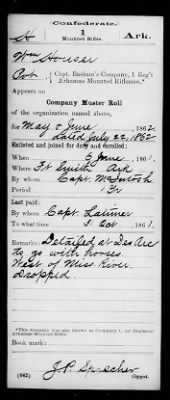 Confederate.
H 1 Ark.
Mounted Rifles.
Wm Houser
Capt. Basham's Company, 1 Reg't
Arkansas Mounted Riflemen.*
Appears on
Company Muster Roll
of the organization named above,
for May & June, 1862.
dated July 22, 1862
Enlisted and joined for duty and enrolled:
When 5 June, 1861.
Where Ft Smith Ark
By whom Capt. McIntosh
Period 1 Yr
Last paid:
By whom Capt. Larimer
To what time 31 Oct, 1861.
Remarks: Detailed at Des Arc
to go with horses.
West of Miss. River.
Dropped.
*This company was also known as Company C, 1st Regiment
Arkansas Mounted Riflemen.
Book mark:
J.P. Sprecher
(642) Copyist.